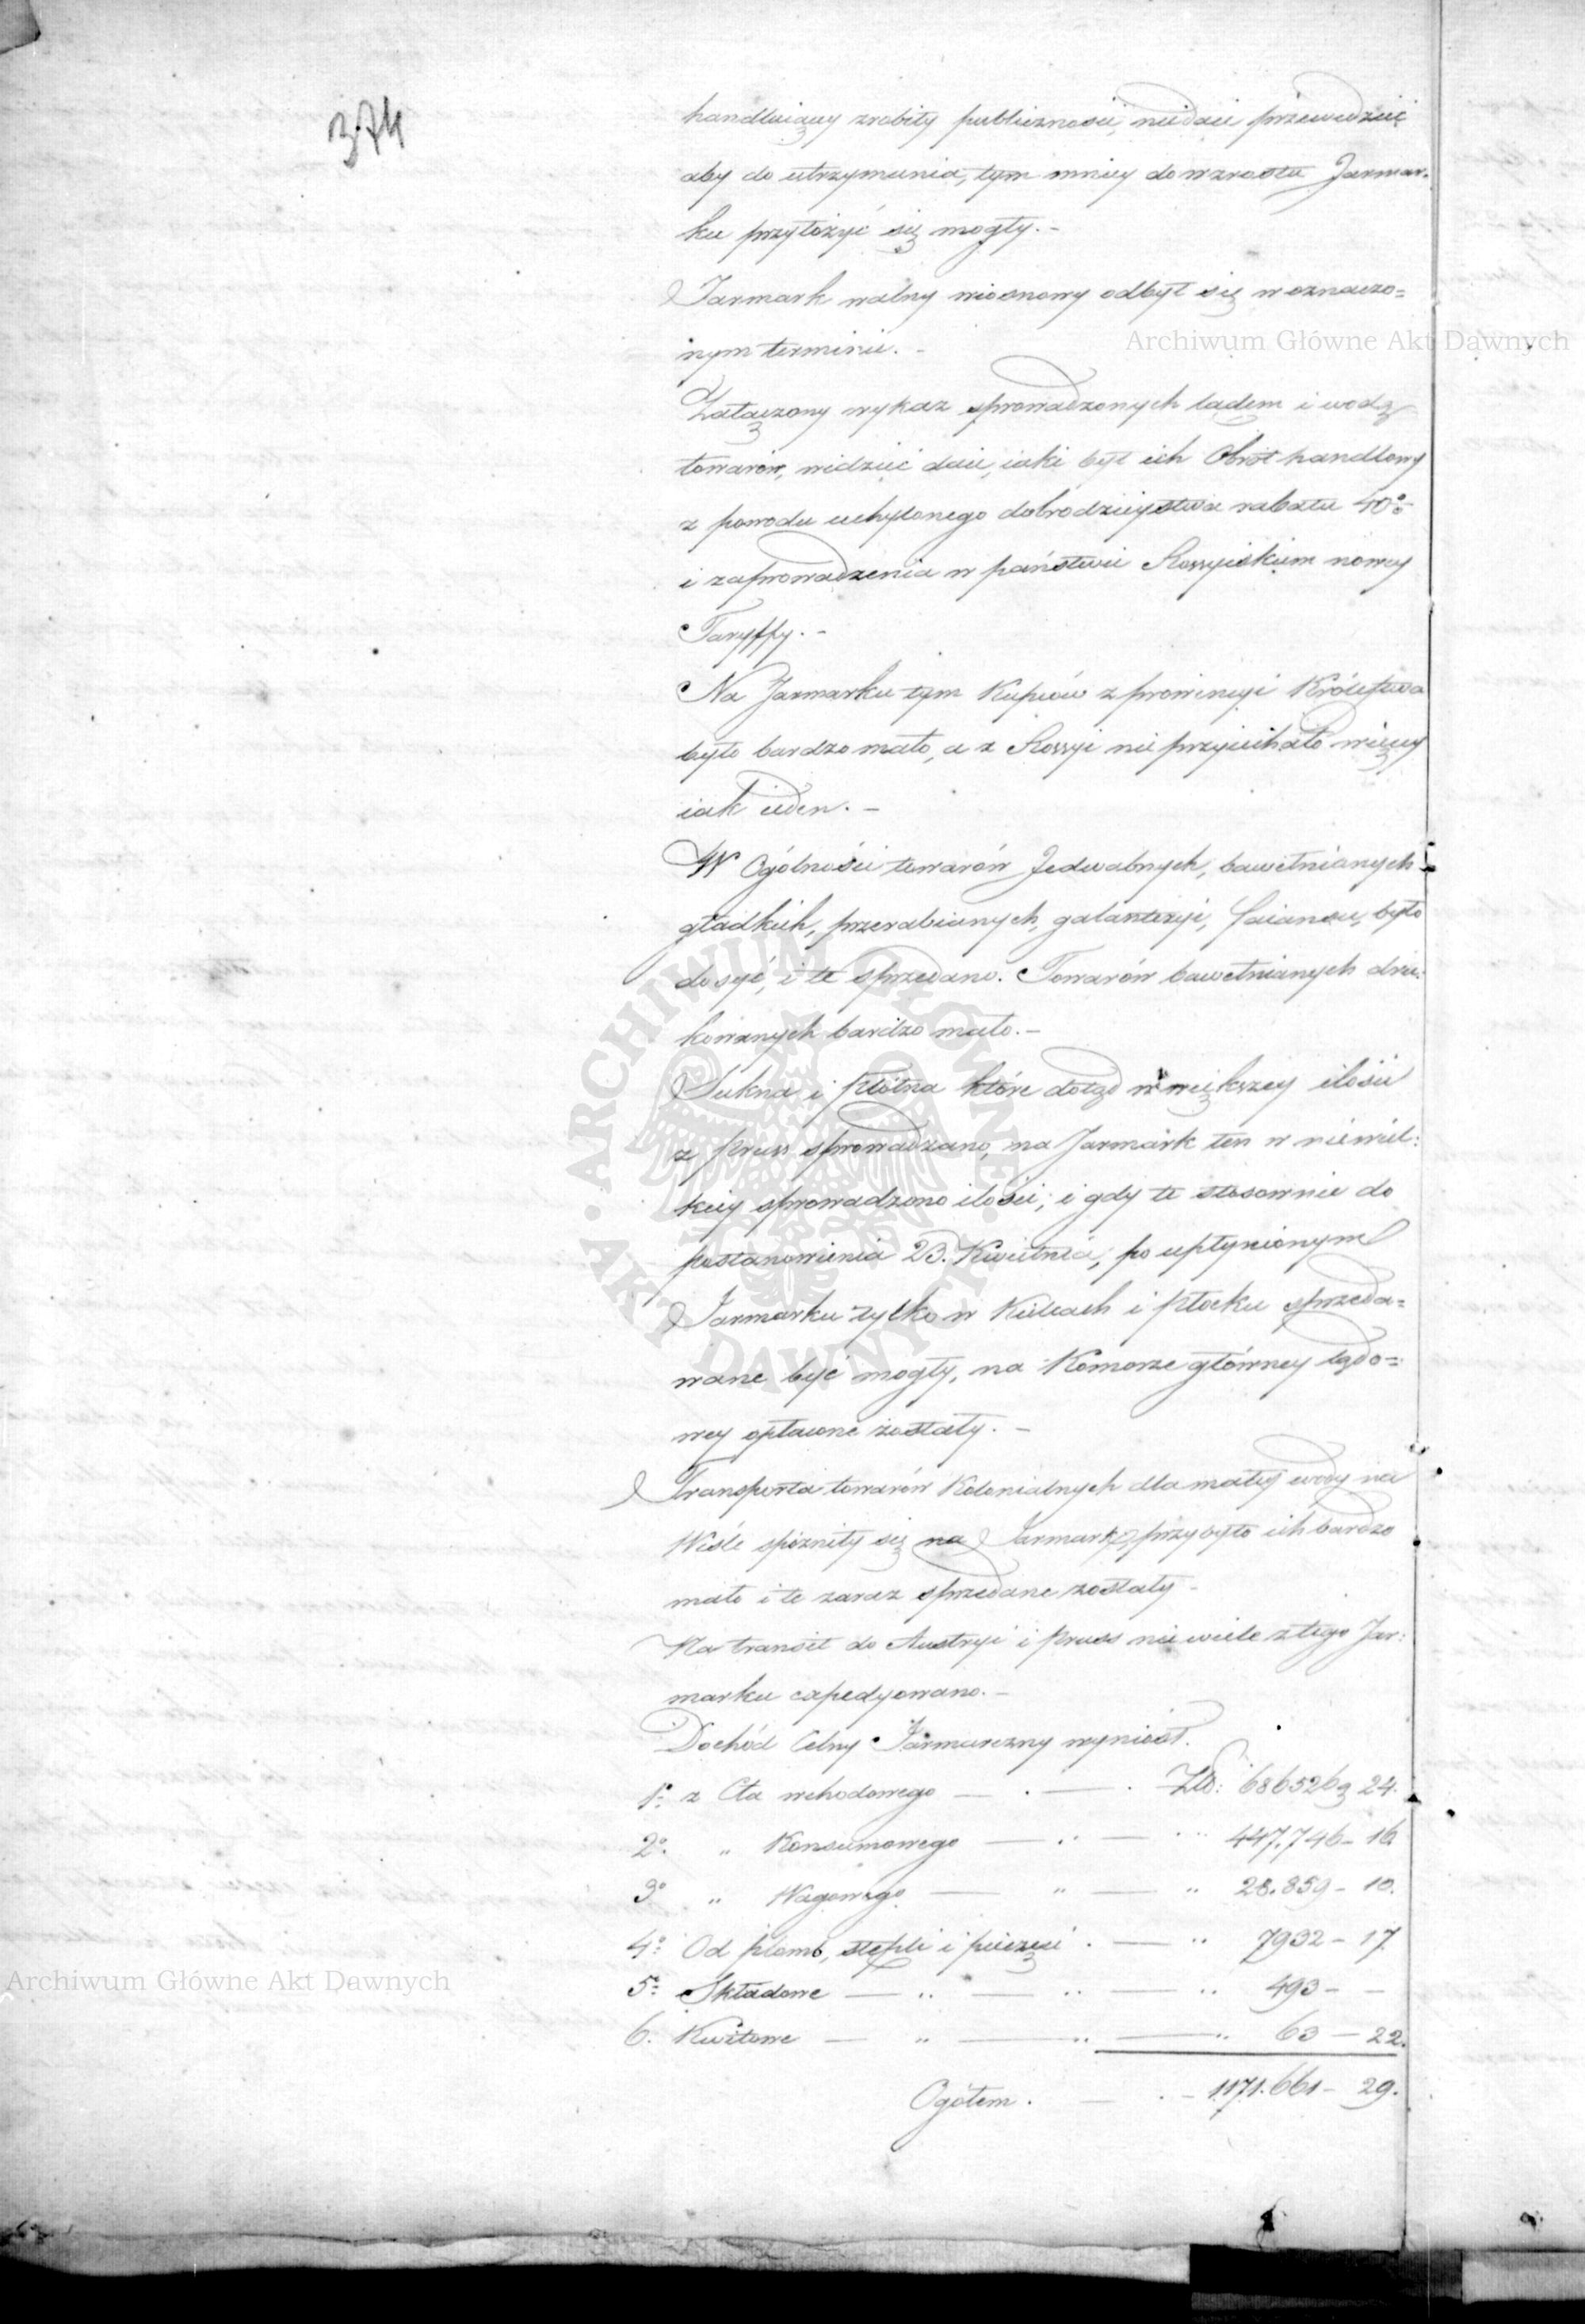 374
handluiący zrobiły publiczności, niedaie przewidzieć
aby do utrzymania, tym mniey do wzrostu Jarmar-
ku przyłożyć się mogły. -
Jarmark walny wiosnowy odbył się w oznaczo=
nym terminie. -
Archiwum Główne Akt Dawnych
Załączony wykaz sprowadzonych lądem i wodą
towarów, widzieć daie, iaki był ich Obrót handlowy
z powodu uchylonego dobrodzieystwa rabatu 40%
i zaprowadzenia w państwie Rossyiskiem nowey
Taryffy. -
Na Jarmarku tym Kupców z prowincyi Królestwa
było bardzo mało, a z Rossyi nie przyiechało więcey
iak ieden. -
W Ogólności towarów Jedwabnych, bawełnianych
gładkich, przerabianych, galanteryi, faiansu, było
dosyć, i te sprzedano. Towarów bawełnianych dru-
kowanych bardzo mało. -
Sukna i płótna które dotąd w większey ilości
z Pruss sprowadzano, na Jarmark ten w niewiel:
kiey sprowadzono ilości, i gdy te stosownie do
postanowienia 23. Kwietnia, po upłynionym
Jarmarku tylko w Kielcach i Płocku sprzeda=
wane być mogły, na Komorze główney lądo=
wey opłacone zostały. -
Transporta towarów Kolonialnych dla małey wody na
Wiśle spóźniły się na Jarmark, przybyło ich bardzo
mało i te zaraz sprzedane zostały -
Na transit do Austryi i Pruss nie wiele z tego Jar:
marku expedyowano. -
Dochód Celny Jarmarczny wyniósł.
1º z Cła wchodowego — . — . Złt: 686526 24.
2º. " Konsumowego — .. — ... 447.746 - 16.
3º " Wagowego — " — " 28.859 - 10.
4º Od plomb, stępli i pieczęci . — " 7932 - 17.
Archiwum Główne Akt Dawnych
5º Składowe — .. — .. — .. 493 - -
6. Kwitowe — " — .. — .. 63 — 22.
Ogółem . — . - 1171.661 - 29.
ARCHIWUM GŁÓWNE · AKT DAWNYCH ·